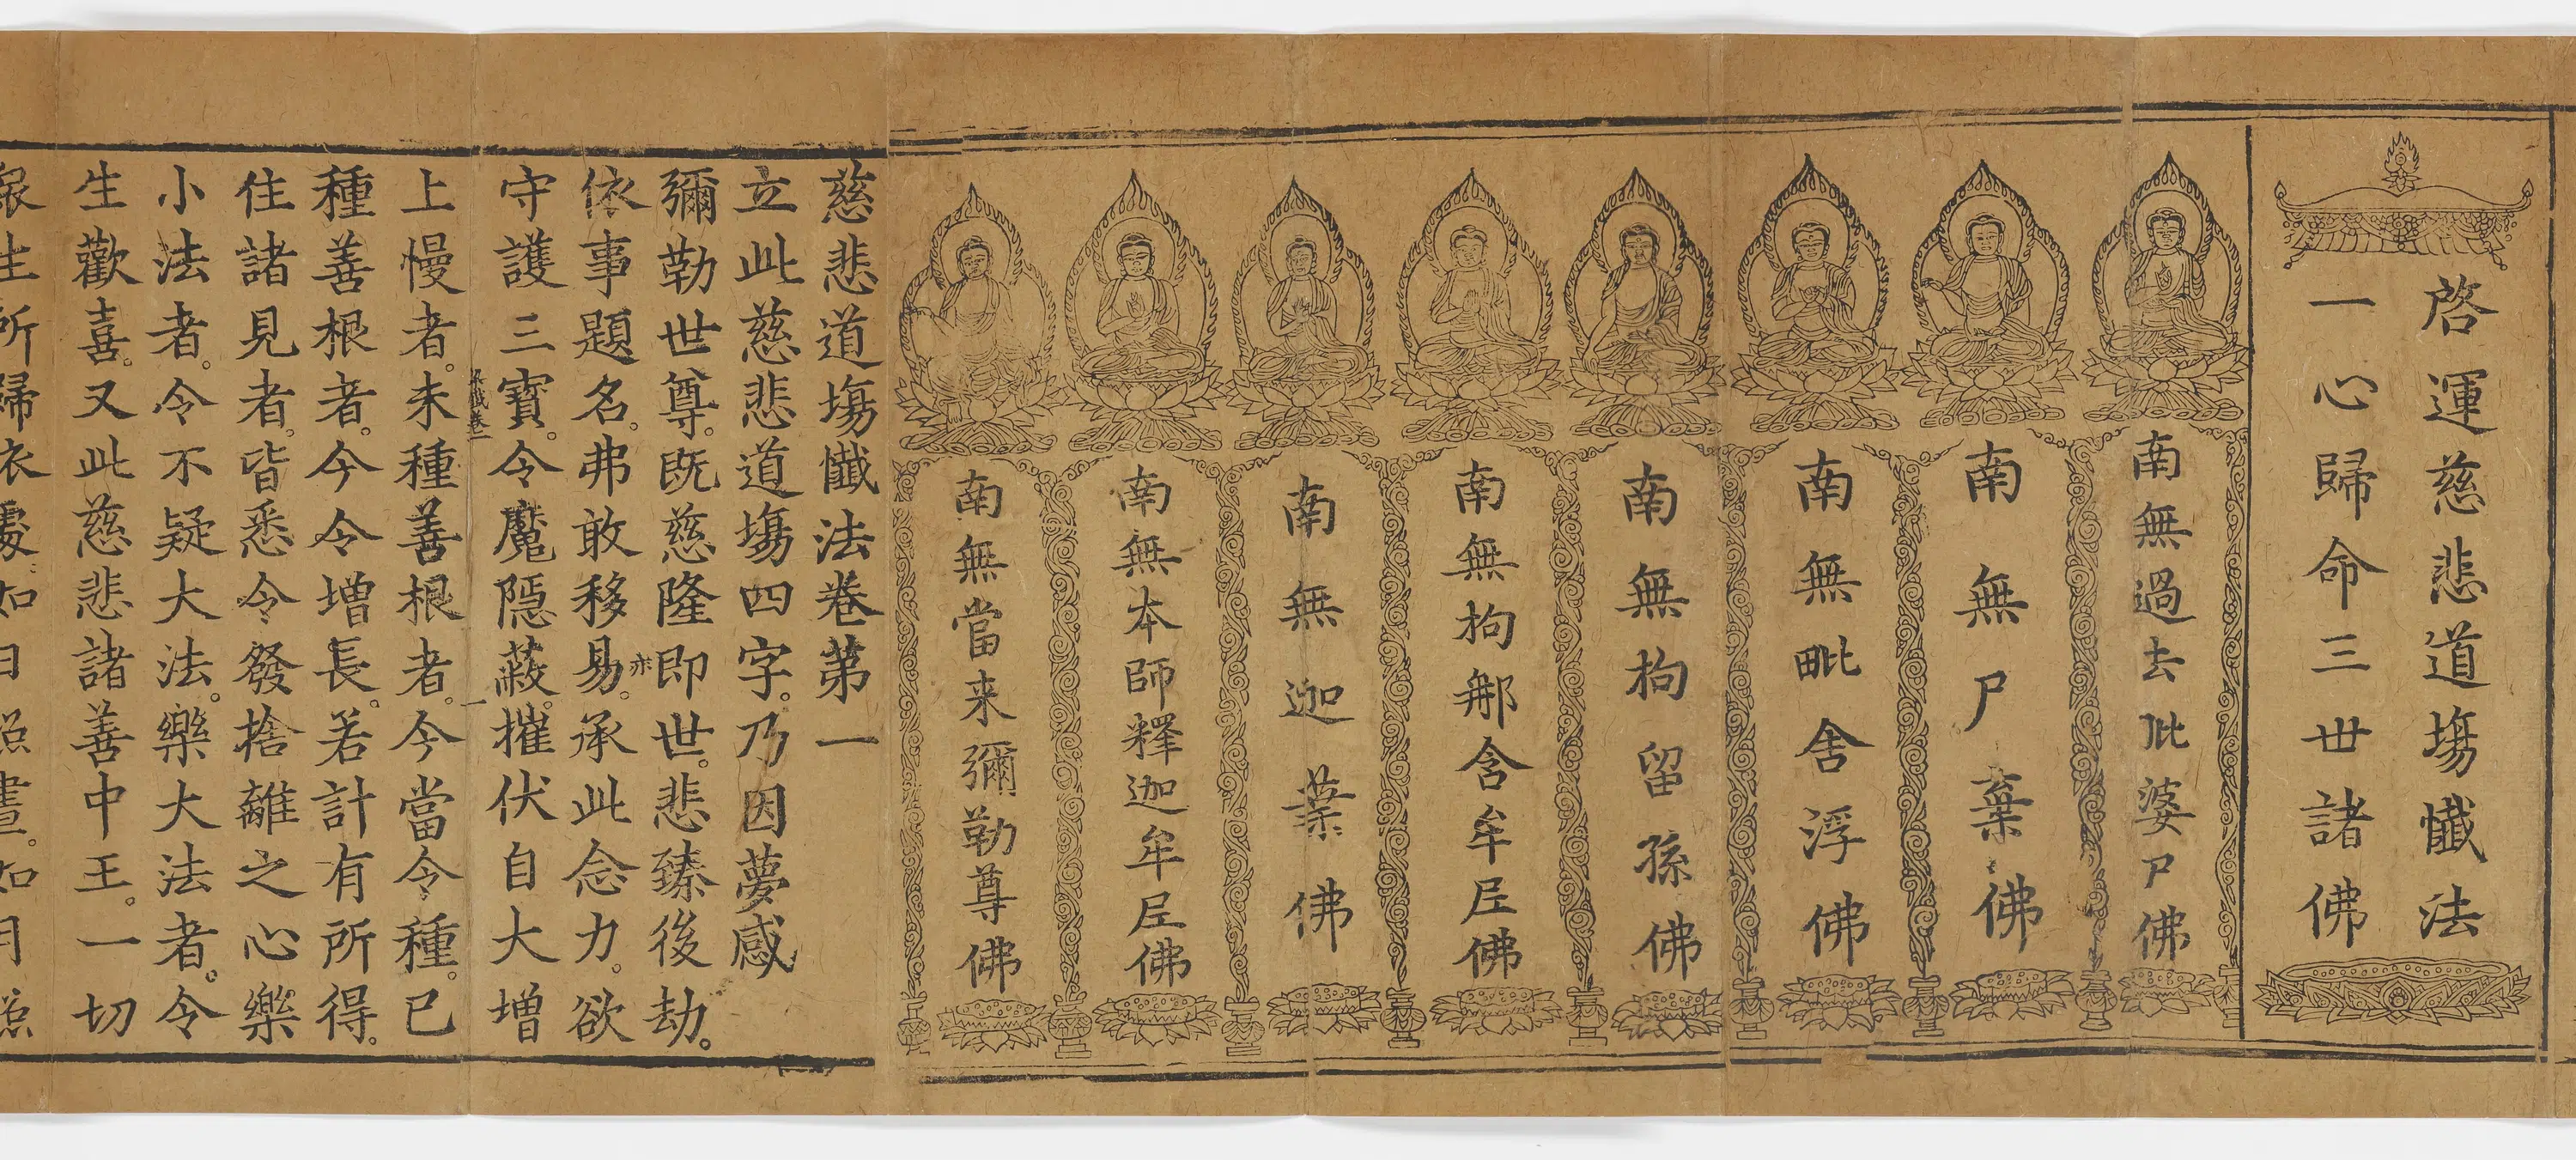 啓運慈悲道場懺法
一心歸命三世諸佛
南無過去毗婆尸佛
南無尸棄佛
南無毗舍浮佛
南無拘留孫佛
南無拘那含牟尼佛
南無迦葉佛
南無本師釋迦牟尼佛
南無當来彌勒尊佛
慈悲道塲懺法卷苐一
立此慈悲道塲四字。乃因夢感
彌勒世尊。既慈隆即世。悲臻後劫。
依事題名。弗敢移易。承此念力。欲
亦
守護三寶。令魔隱蔽。摧伏自大增
一
上慢者。未種善根者。今當令種。已
種善根者。今令增長。若計有所得。
住諸見者。皆悉令發捨離之心。樂
小法者。令不疑大法。樂大法者。令
生歡喜。又此慈悲諸善中王。一切
衆生所歸依處。如日照晝。如月照